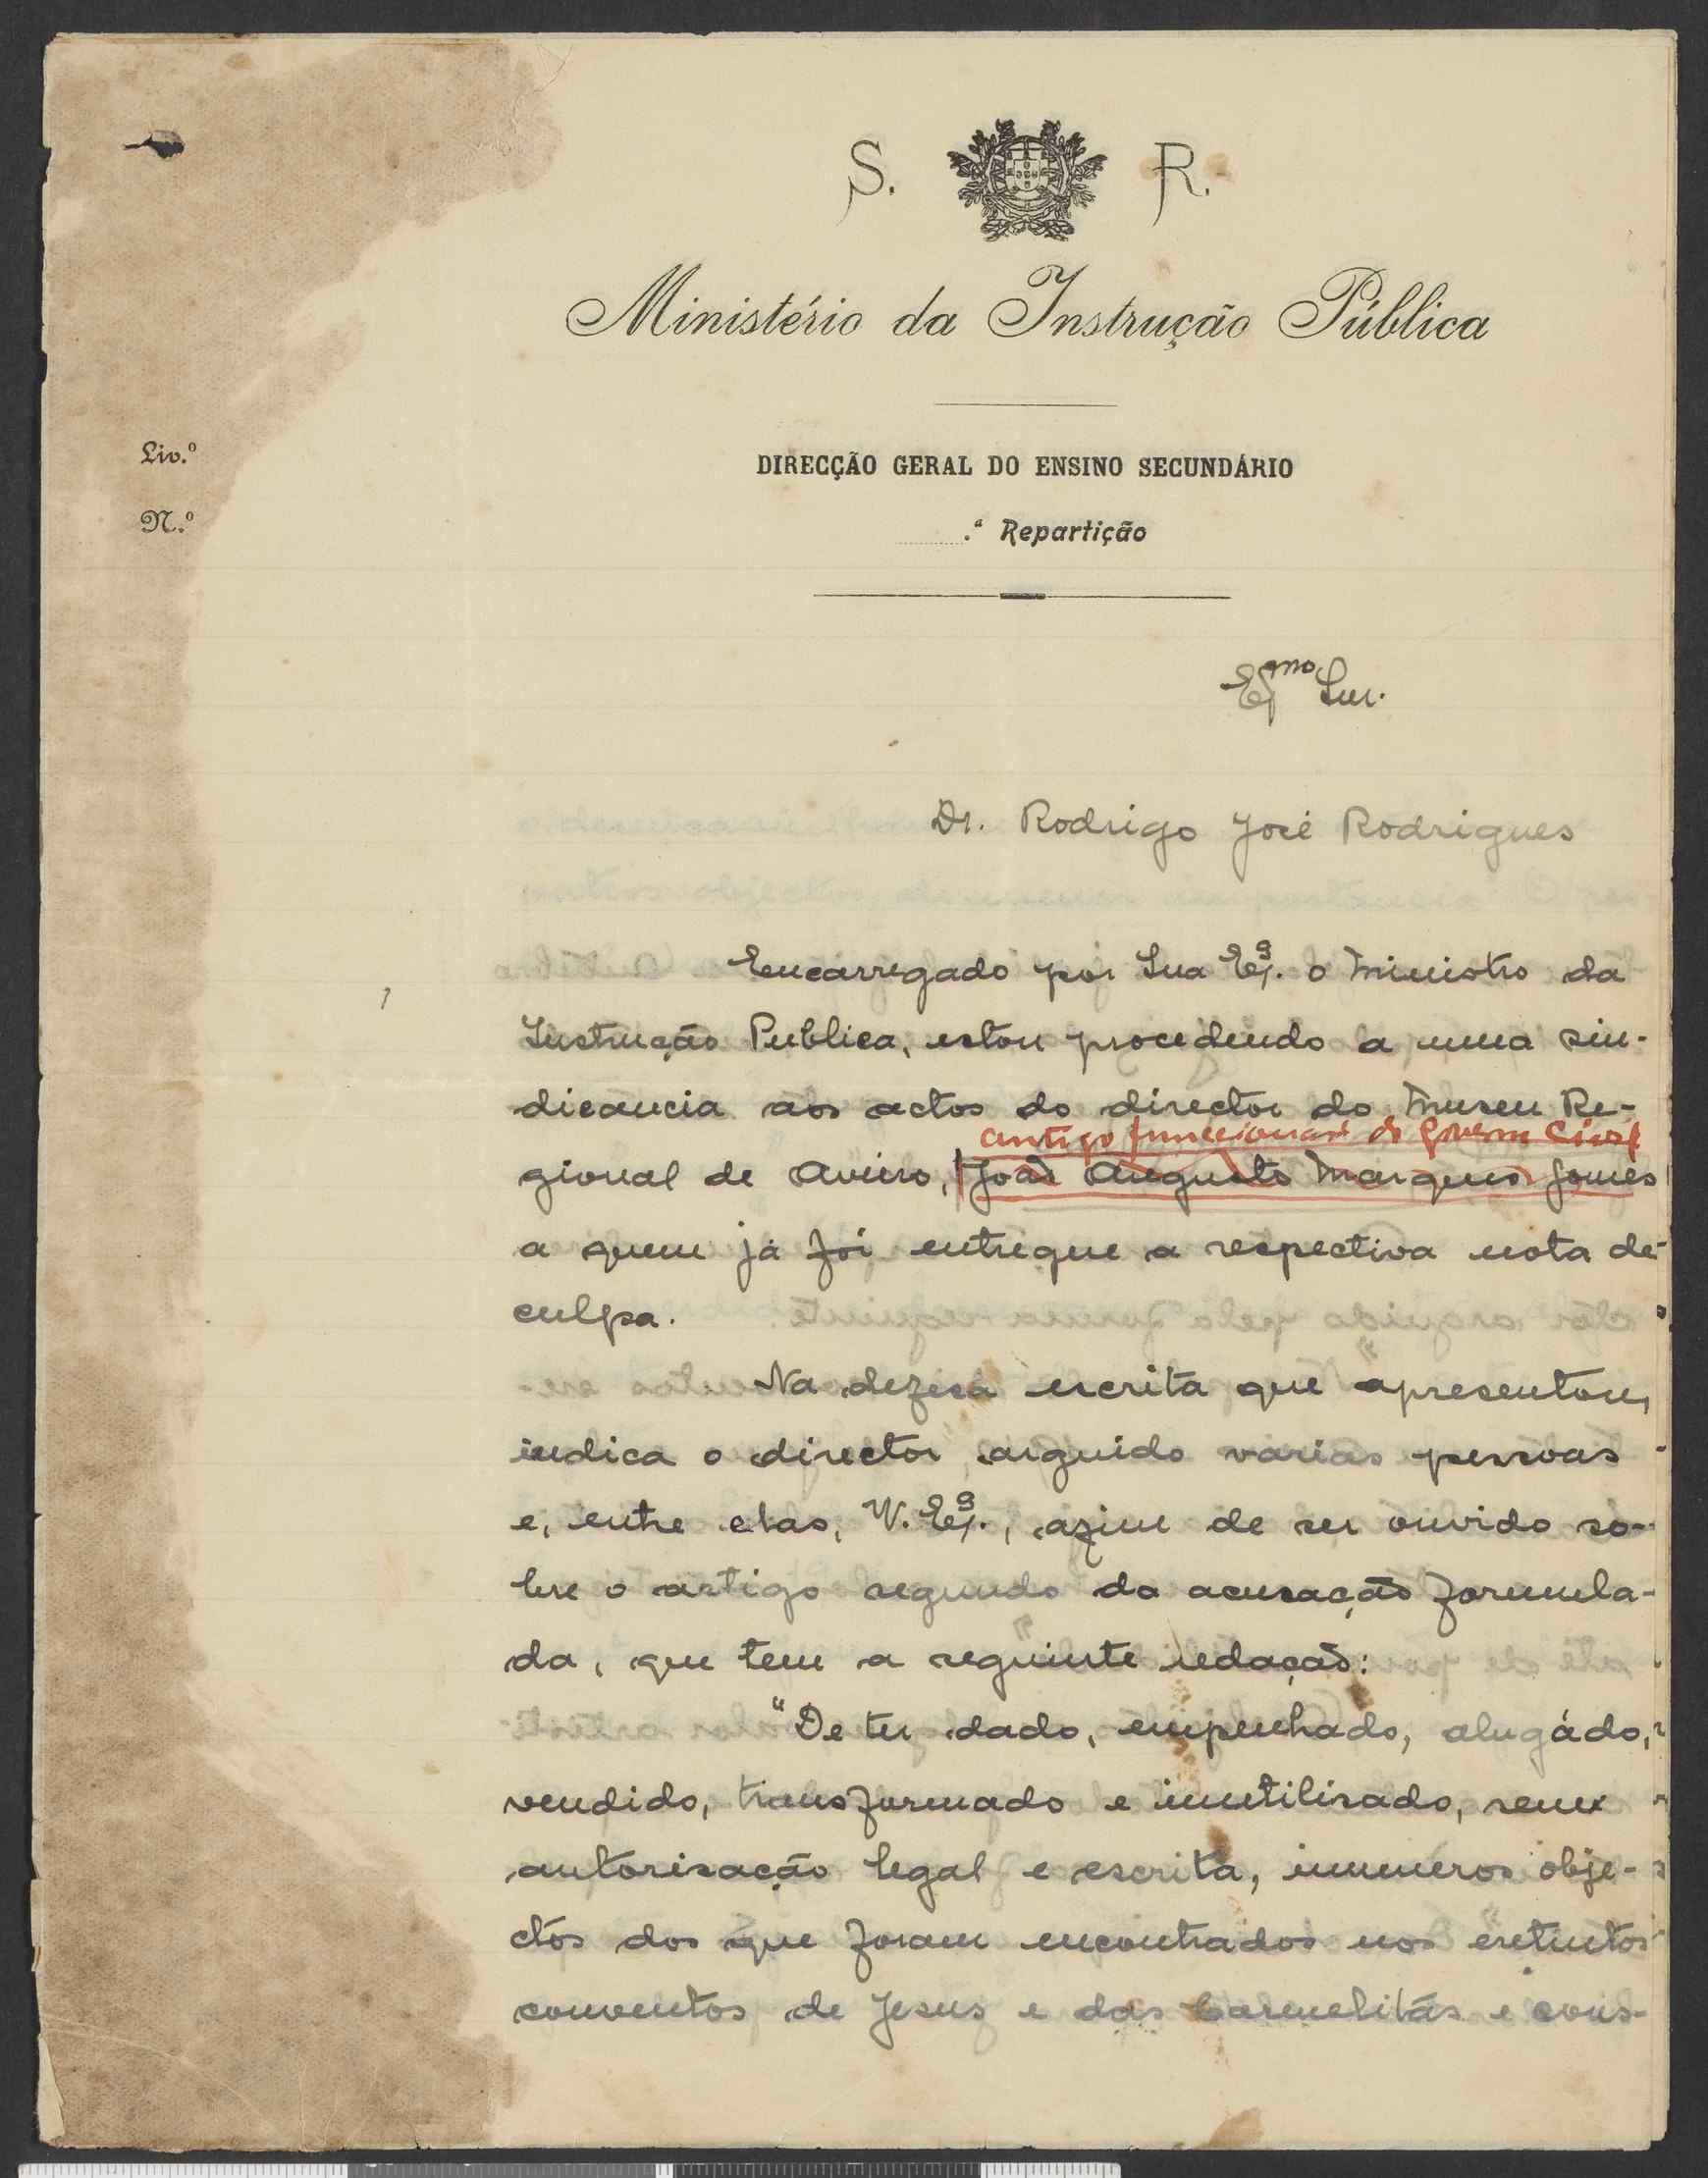 S. R.
Ministério da Instrução Pública
Liv.º
DIRECÇÃO GERAL DO ENSINO SECUNDÁRIO
N.º
.ª Repartição
Exmo Snr.
Dr. Rodrigo José Rodrigues
Encarregado por Sua Exª. o Ministro da
1
Instrução Publica, estou procedendo a uma sin-
dicancia aos actos do director do Museu Re-
antigo funccionario do Governo Civil
gional de Aveiro, João Augusto Marques Gomes
a quem já foi entregue a respectiva nota de
culpa.
Na defesa escrita que apresentou,
indica o director arguido varias pessoas
e, entre elas, V. Exª., afim de ser ouvido so-
bre o artigo segundo da acusação formula-
da, que tem a seguinte redação:
"De ter dado, empenhado, alugádo,
vendido, transformado e inutilisado, sem
autorisação legal e escrita, inumeros obje-
ctos dos que foram encontrados nos extintos
conventos de Jesus e das Carmelitas e cons-